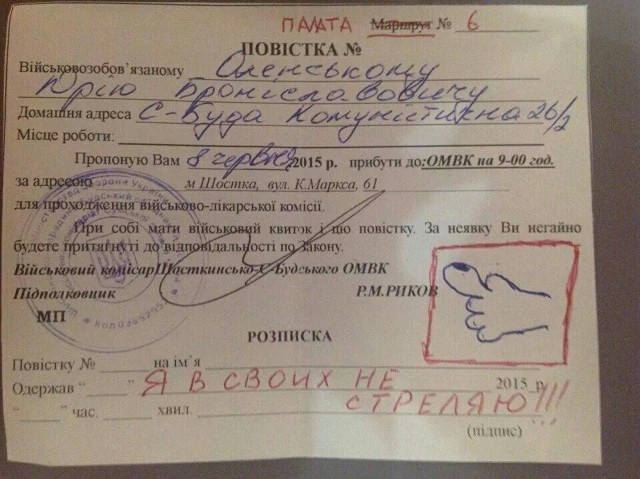 ПАЛАТА Маршрут № 6
ПОВІСТКА №
Військовозобов'язаному Оленському
Юрію Броніславовичу
Домашня адреса С-Буда Комуністична 26/2
Місце роботи:
Пропоную Вам 8 червня 2015 р. прибути до:ОМВК на 9-00 год.
за адресою м Шостка, вул. К.Маркса, 61
для проходження військово-лікарської комісії.
При собі мати військовий квиток і цю повістку. За неявку Ви негайно
будете притягнуті до відповідальності по Закону.
Військовий комісар Шосткинсько-С-Будського ОМВК
Підполковник Р.М.РИКОВ
МП
РОЗПИСКА
Повістку № на ім'я
Одержав “ ” Я В СВОИХ НЕ 2015 р.
“ ” час. хвил. СТРЕЛЯЮ!!!
(підпис)